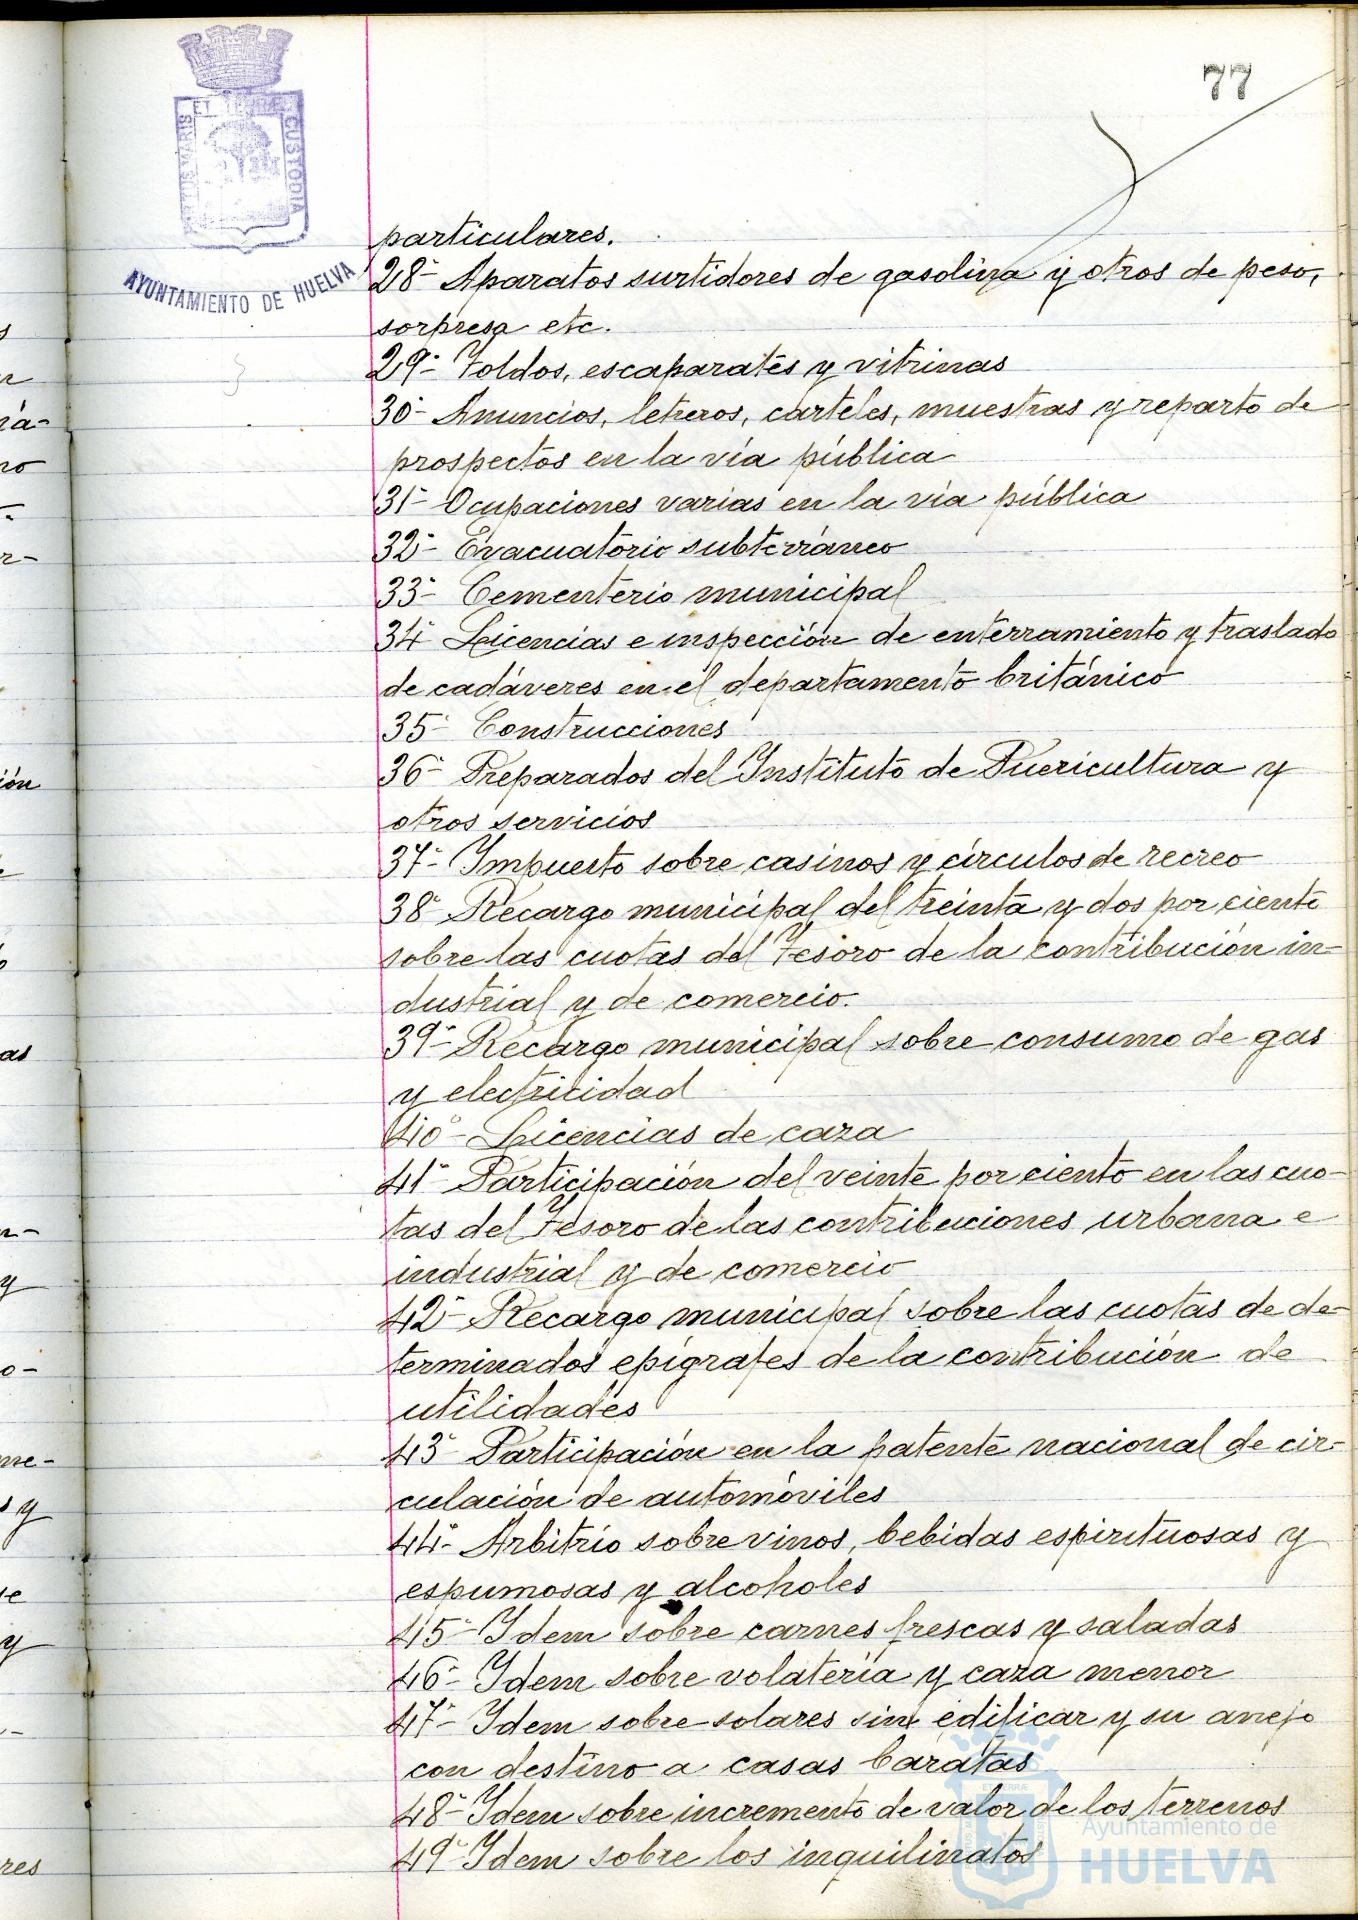 77
PORTUS MARIS ET TERRAE CUSTODIA
AYUNTAMIENTO DE HUELVA
particulares.
28º- Aparatos surtidores de gasolina y otros de peso,
sorpresa etc.
29º- Toldos, escaparates y vitrinas
30º- Anuncios, letreros, carteles, muestras y reparto de
prospectos en la vía pública
31º- Ocupaciones varias en la vía pública
32º- Evacuatorio subterráneo
33º- Cementerio municipal
34º Licencias e inspección de enterramiento y traslado
de cadáveres en el departamento británico
35º- Construcciones
36º- Preparados del Instituto de Puericultura y
otros servicios
37º- Impuesto sobre casinos y círculos de recreo
38º Recargo municipal del treinta y dos por ciento
sobre las cuotas del Tesoro de la contribución in-
dustrial y de comercio.
39º- Recargo municipal sobre consumo de gas
y electricidad
40º- Licencias de caza
41º- Participación del veinte por ciento en las cuo-
tas del Tesoro de las contribuciones urbana e
industrial y de comercio
42º- Recargo municipal sobre las cuotas de de-
terminados epígrafes de la contribución de
utilidades
43º- Participación en la patente nacional de cir-
culación de automóviles
44º- Arbitrio sobre vinos, bebidas espirituosas y
espumosas y alcoholes
45º- Idem sobre carnes frescas y saladas
46º- Idem sobre volatería y caza menor
47º- Idem sobre solares sin edificar y su anejo
con destino a casas baratas
48º- Idem sobre incremento de valor de los terrenos
49º Idem sobre los inquilinatos
Ayuntamiento de
HUELVA